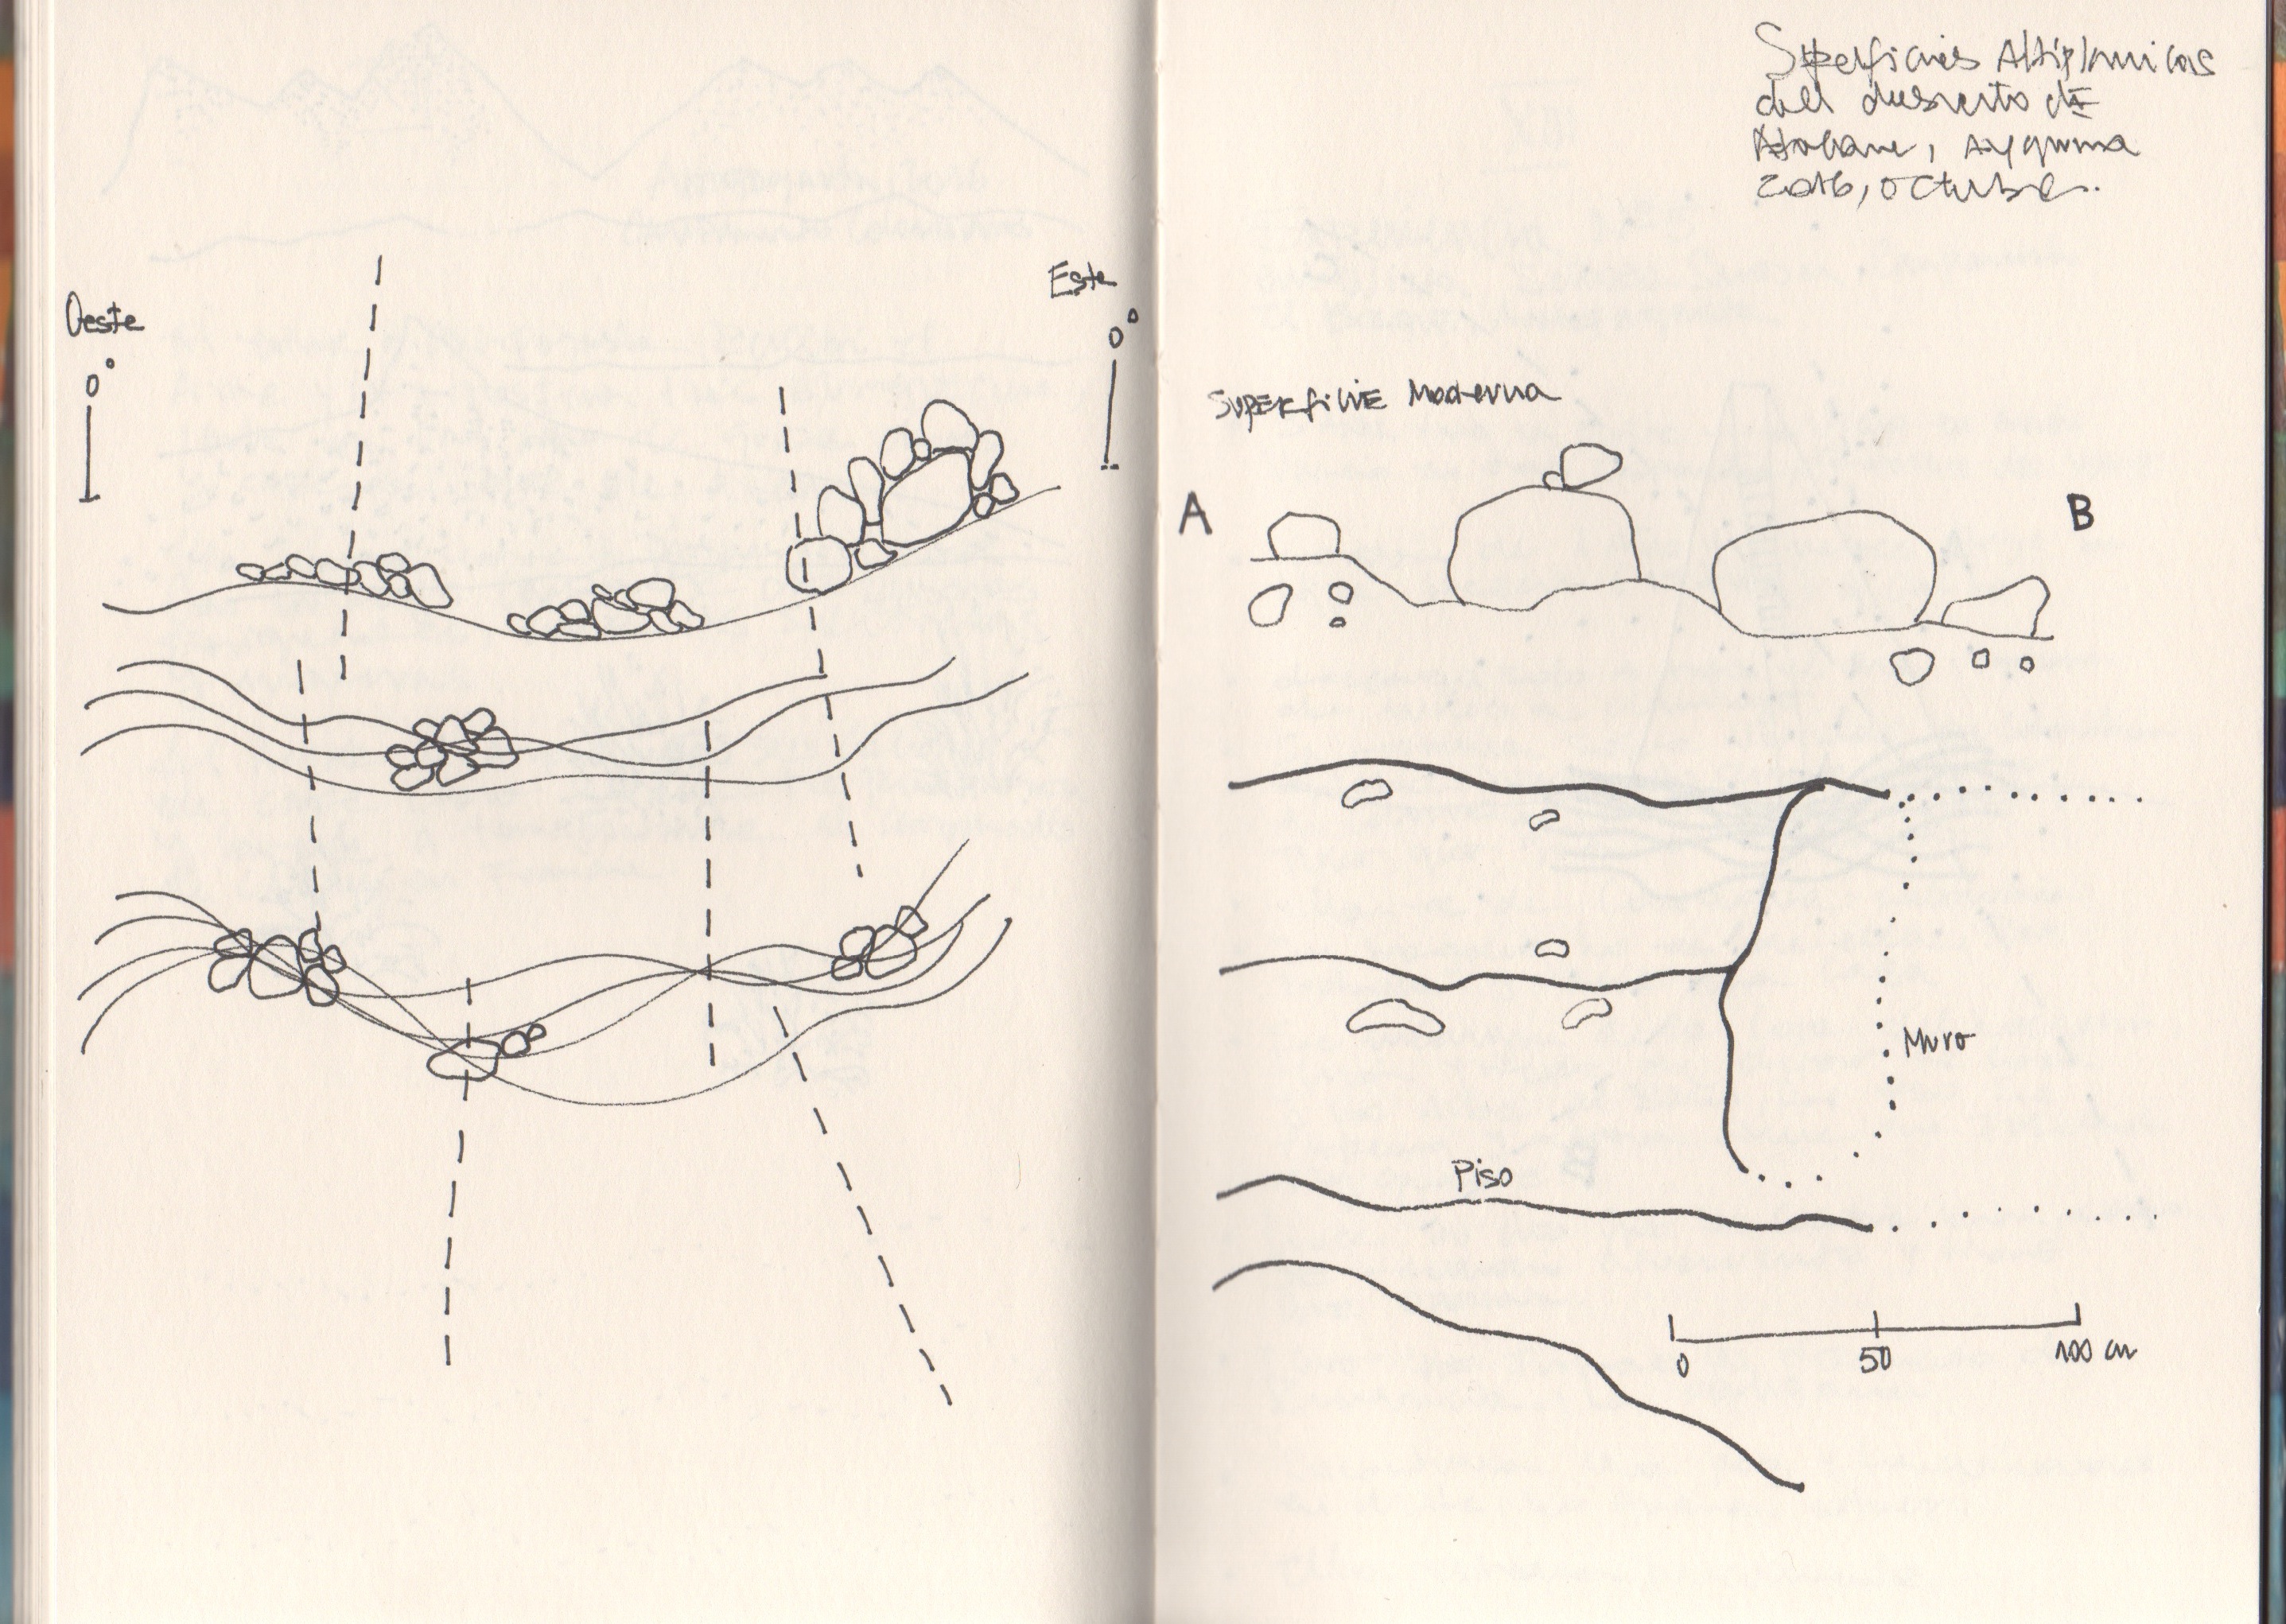 Oeste
0°
Este
0°
Superficies Altiplanicas
del desierto de
Atacama, Ayquina
2016, octubre.
Superficie Moderna
A
B
Muro
Piso
0 50 100 cm